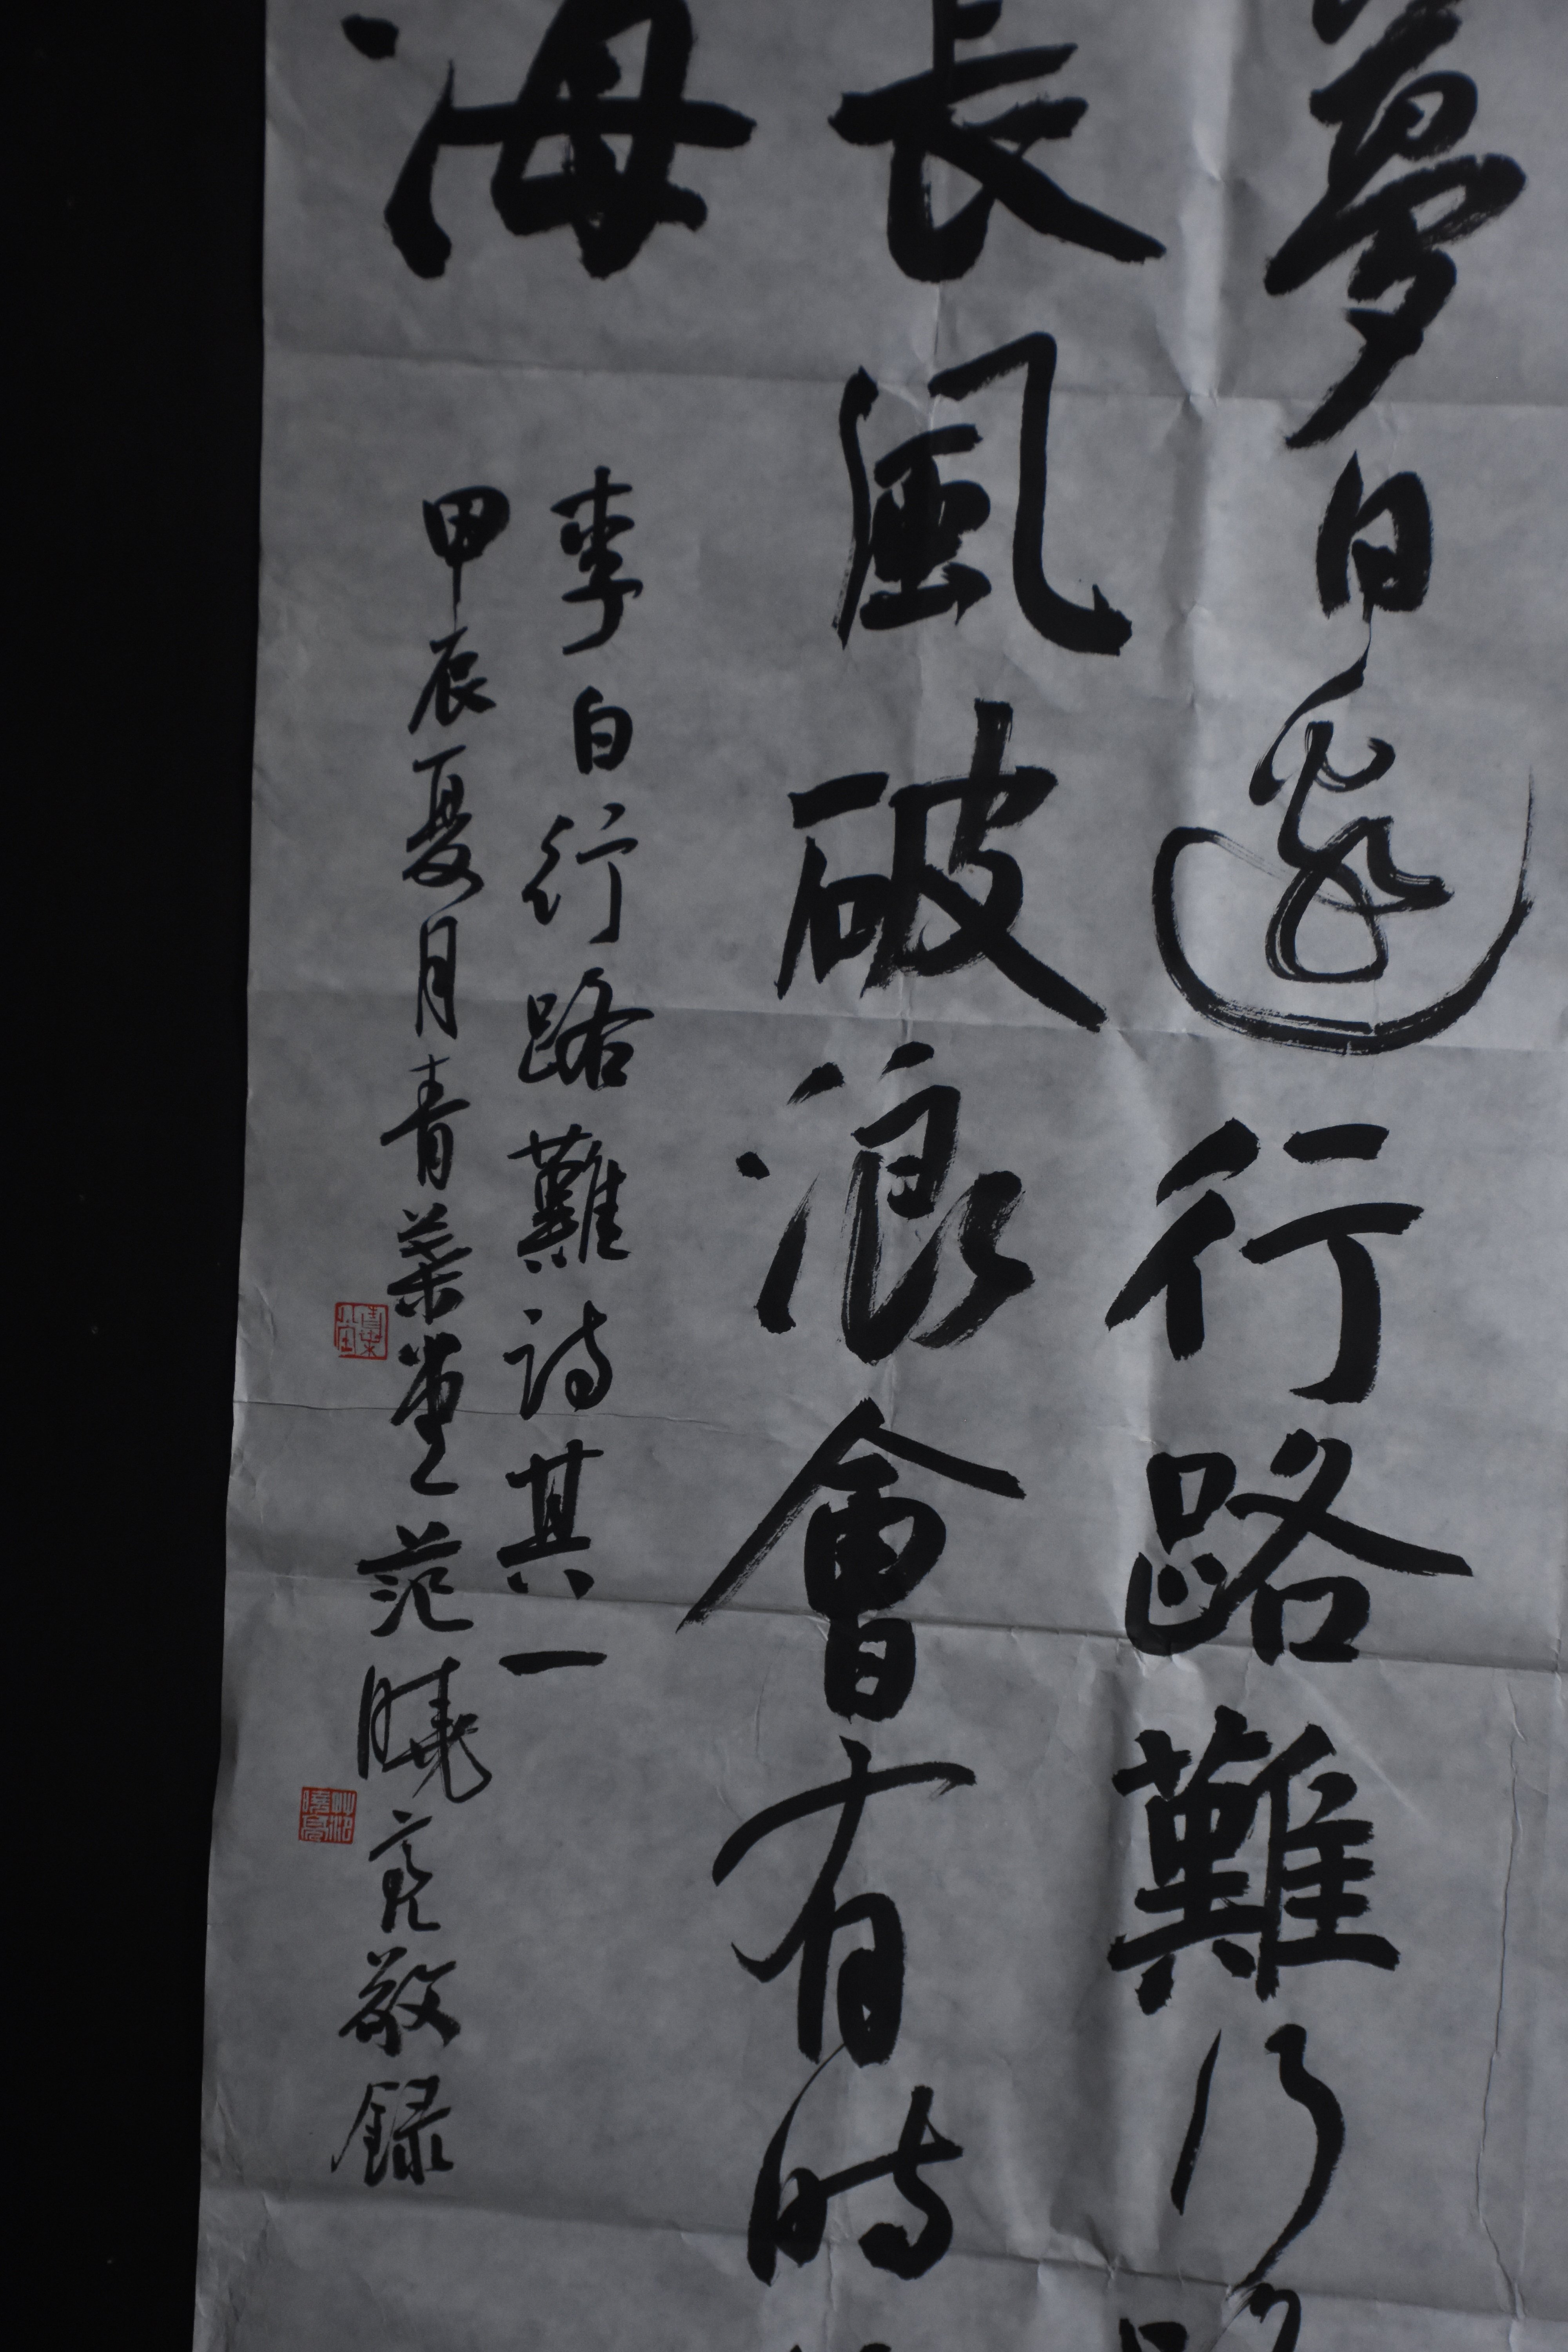 夢日邊行路難行路
長風破浪會有時
海
李白行路難詩其一
甲辰夏月青葉堂范曉亮敬録
青葉堂